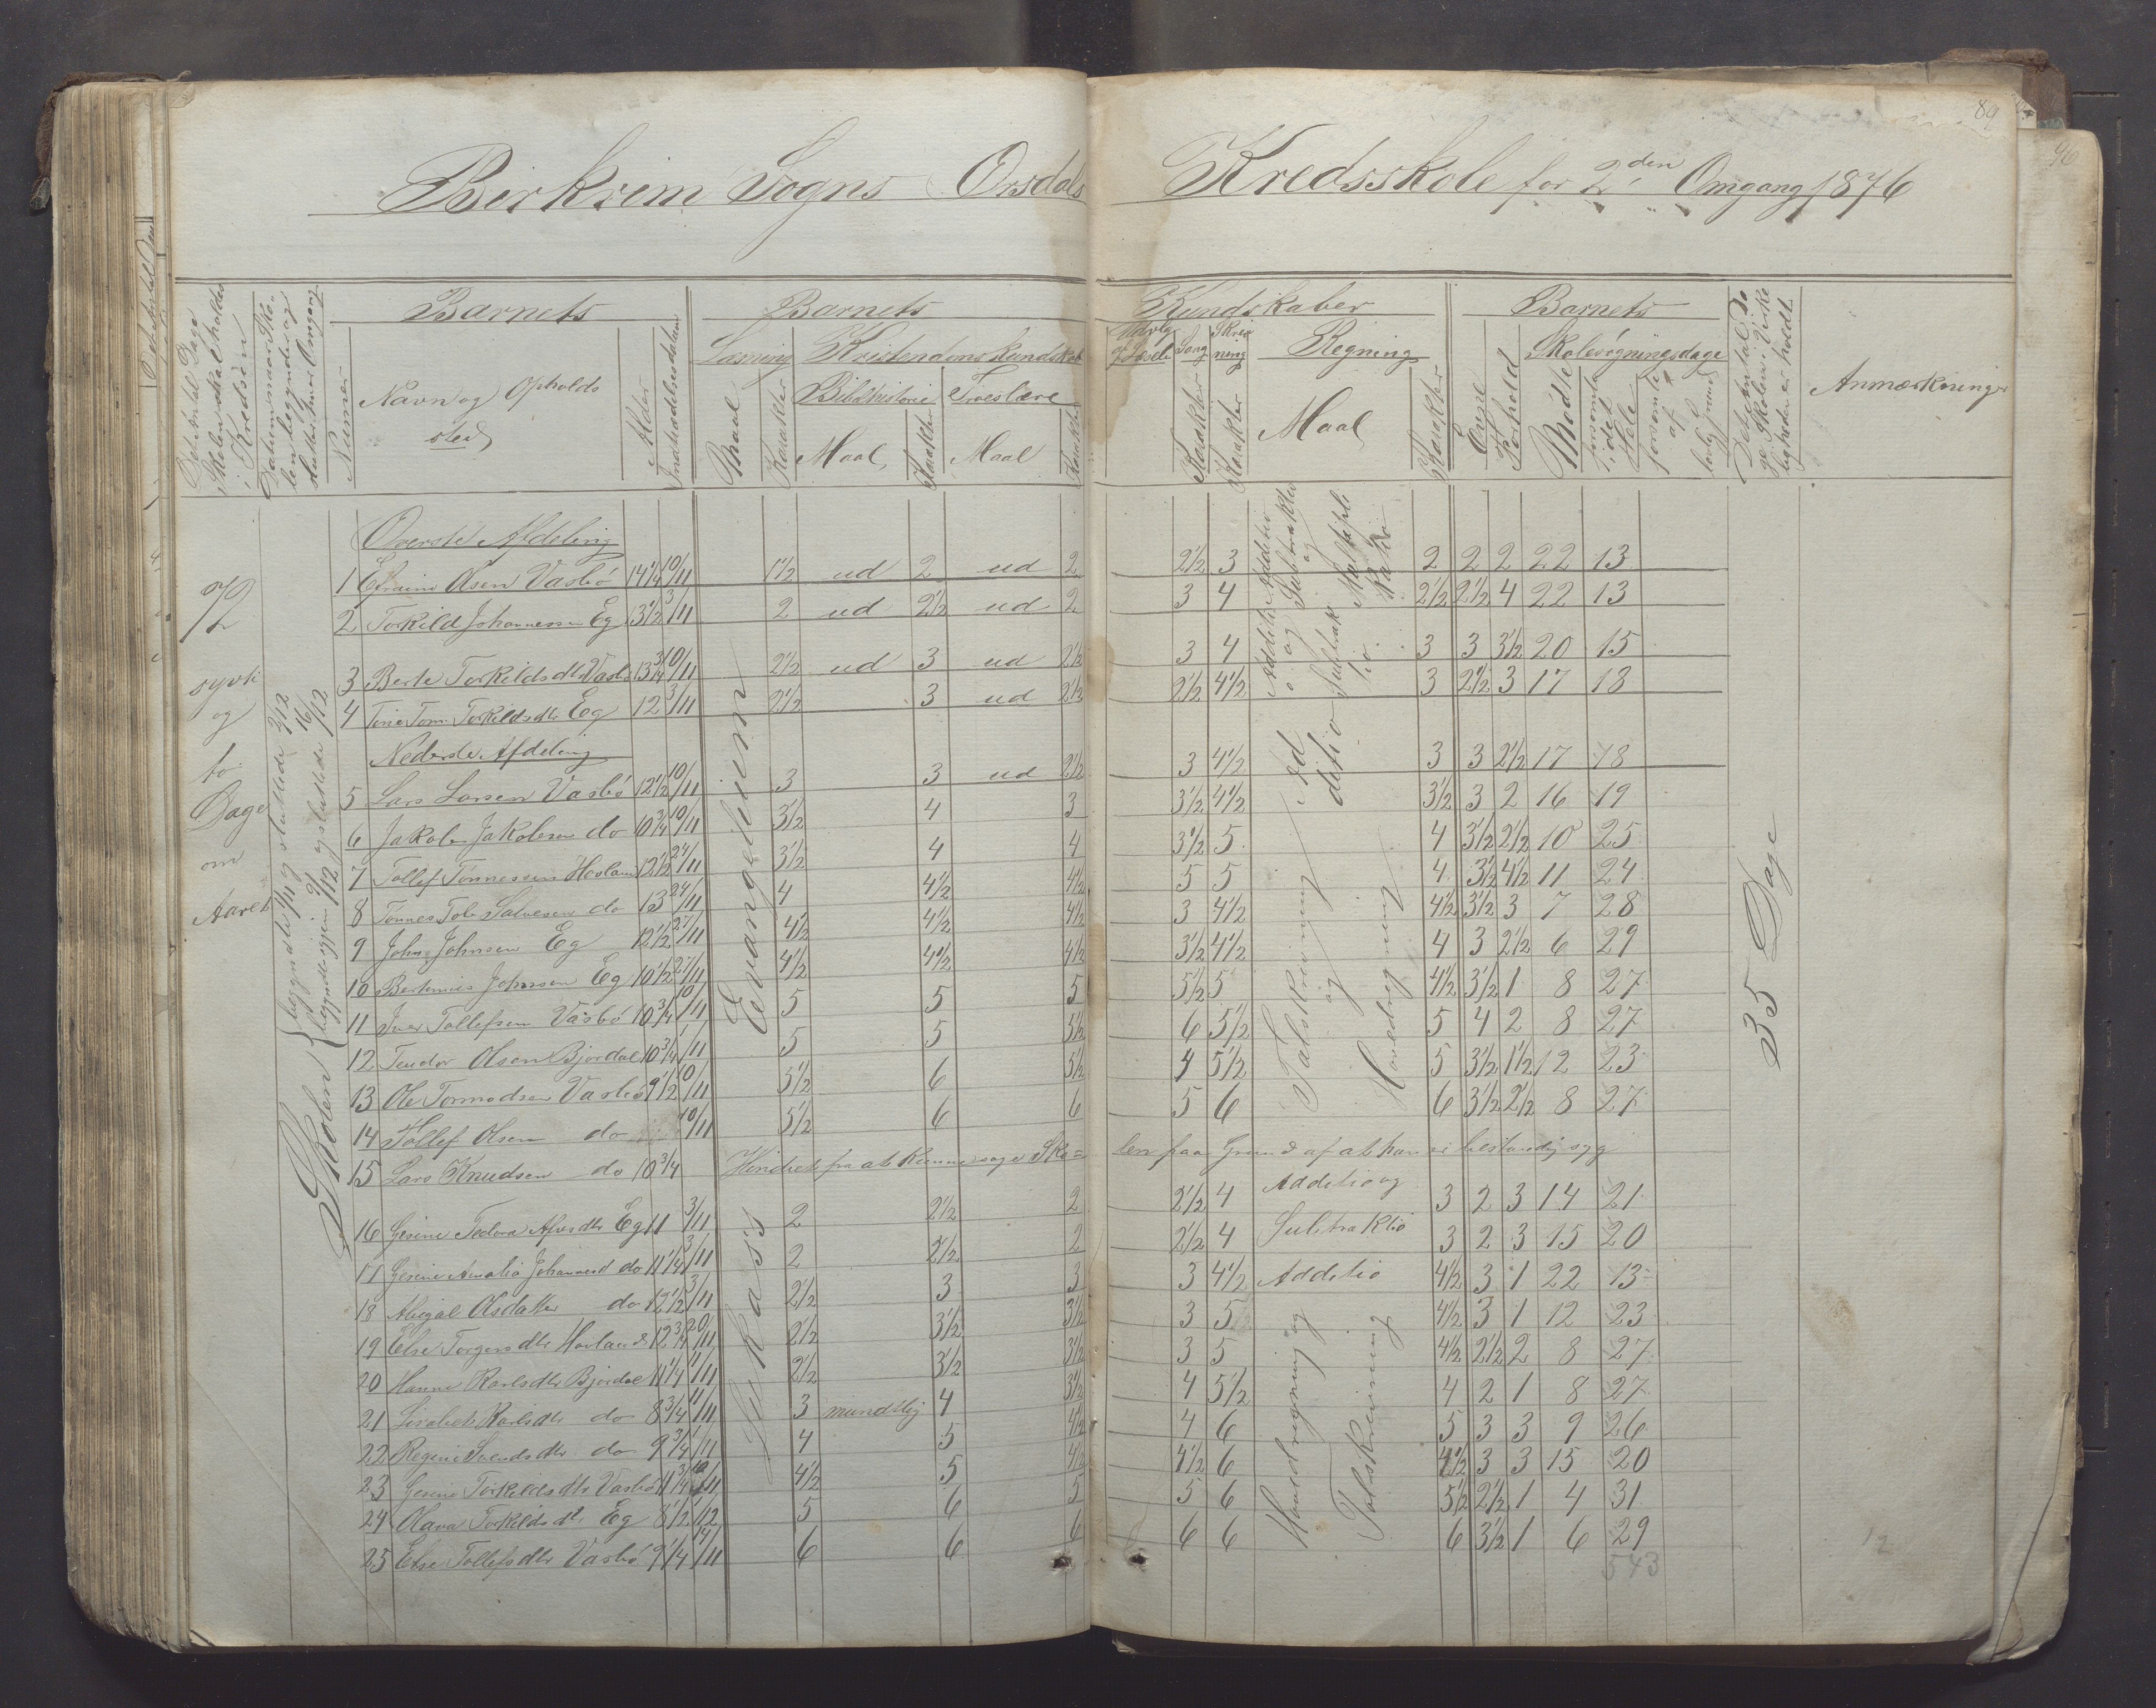 89
96
Birkrem Sogns Orsdals Kredsskole for 2den Omgang 1876
Det Antal Dage Skolen skal holdes i Kredsen
Datum naar Skolen begyndte og sluttede hver Omgang
Barnets
Numer
Navn og Opholdssted
Alder
Indtrædelsesdatum
Barnets Kundskaber
Læsning
Maal
Karakter
Kristendomskundskab
Bibelhistorie
Maal
Karakter
Troeslære
Maal
Karakter
Udvalg af Læseb
Sang
Karakter
Skrivning
Karakter
Regning
Maal
Karakter
Barnets
Evne
Forhold
Skolesøgningsdage
Mødte
forsømte i det Hele
forsømte af lovlig Grund
Det Antal Dage Skolen i Virkeligheden er holdt
Anmærkninger
72
syvti
og
to
Dage
om
Aaret
Skolen begyndte 1/11 og sluttede 2/12
begyndte igjen 9/12 og sluttede 16/12
Evangelium
Lukas's
35 Dage
Øverste Afdeling
1 Efraim Olsen Vasbö 14 1/4 10/11 1 1/2 ud 2 ud 2 2 1/2 3 Additio Subtraktio og Multiplikatio 2 2 2 22 13
2 Torkild Johannessen Eg 13 1/2 3/11 2 ud 2 1/2 ud 2 3 4 2 1/2 2 1/2 4 22 13
3 Berte Torkildsdtr Vasbö 13 3/4 10/11 2 1/2 ud 3 ud 2 1/2 3 4 Additio og Subtraktio 3 3 3 1/2 20 15
4 Torkildsdtr Eg 12 3/11 2 1/2 3 ud 2 1/2 2 1/2 4 1/2 3 2 1/2 3 17 18
Nederste Afdeling
5 Lars Larsen Vasbö 12 1/2 10/11 3 3 ud 2 1/2 3 4 1/2 Additio 3 3 2 1/2 17 18
6 Jakob Jakobsen do 10 3/4 10/11 3 1/2 4 3 3 1/2 4 1/2 3 1/2 3 2 16 19
7 Tollef Tönnessen Hovland 12 1/2 24/11 3 1/2 4 4 3 1/2 5 Talskrivning og Hovedregning 4 3 1/2 2 1/2 10 25
8 Tönnes Tob. Salvesen do 13 24/11 4 4 1/2 4 1/2 5 5 4 3 1/2 4 1/2 11 24
9 John Johnsen Eg 12 1/2 27/11 4 1/2 4 1/2 4 1/2 3 4 1/2 4 1/2 3 1/2 3 7 28
10 Bertinius Johnsen Eg 10 1/2 27/11 4 1/2 4 1/2 4 1/2 3 1/2 4 1/2 4 3 2 1/2 6 29
11 Iver Tollefsen Vasbö 10 3/4 10/11 5 5 5 5 1/2 5 4 1/2 3 1/2 1 8 27
12 Teodor Olsen Bjordal 10 3/4 1/11 5 5 5 1/2 6 5 1/2 5 4 2 8 27
13 Ole Tormodsen Vasbö 9 1/2 10/11 5 1/2 6 5 1/2 4 5 1/2 5 3 1/2 1 1/2 12 23
14 Tollef Olsen do 10/11 5 1/2 6 6 5 6 6 3 1/2 2 1/2 8 27
15 Lars Knudsen do 10 3/4 Hindret fra at kunne søge Skolen paa Grund af at han er bestandig syg
16 Gesine Tedora Alfsdtr Eg 11 3/11 2 2 1/2 2 2 1/2 4 Additio og 3 2 3 14 21
17 Gesine Amalia Johannesd do 11 1/4 3/11 2 2 1/2 2 2 1/2 4 Subtraktio 3 2 3 15 20
18 Abigal Olsdatter do 12 1/2 3/11 2 1/2 3 3 3 4 1/2 Additio 4 1/2 3 1 22 13
19 Else Torgersdtr Hovland 12 3/4 20/11 2 1/2 3 1/2 3 1/2 3 5 Hovedregning og Talskrivning 4 1/2 3 1 12 23
20 Hanne Karlsdtr Bjordal 11 1/4 1/11 2 1/2 3 1/2 3 1/2 3 5 4 1/2 2 1/2 2 8 27
21 Lisabet Karlsdtr do 8 3/4 11/11 3 mundtlig 4 3 1/2 4 5 1/2 4 2 1 8 27
22 Regine Svendsdtr do 9 3/4 1/11 4 5 4 1/2 4 6 5 3 3 9 26
23 Gesine Torkildsdtr Vasbö 11 3/4 10/11 4 1/2 5 4 1/2 4 1/2 6 4 1/2 3 3 15 20
24 Olava Torkildsdtr Eg 8 1/2 1/12 5 6 5 5 6 5 1/2 2 1/2 1 4 31
25 Else Tollefsdtr Vasbö 9 1/4 14/11 6 6 6 6 6 6 3 1/2 1 6 29
543
12